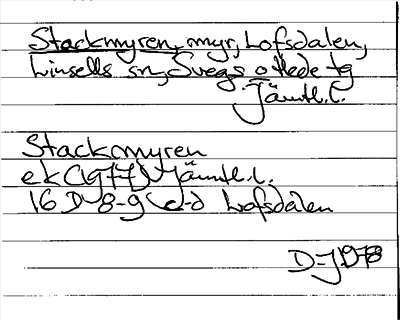 Stackmyren, myr, Lofsdalen,
Linsells sn, Svegs o Hede tg
Jämtl.l.
Stackmyren
ek (1977) Jämtl.l.
16 D 8-9 c-d Lofsdalen
D-J 1978